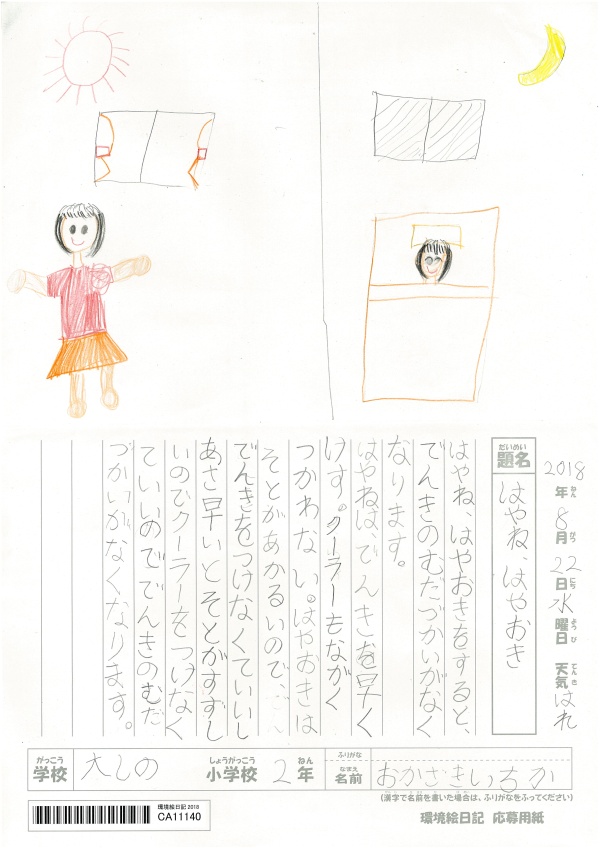 2018年8月22日水曜日 天気はれ
ねん がつ にち ようび てんき
だいめい
題名
はやね、はやおき
はやね、はやおきをすると、
でんきのむだづかいがなく
なります。
はやねは、でんきを早く
けす。クーラーもながく
つかわない。はやおきは
そとがあかるいので、
でんきをつけなくていいし
あさ早いとそとがすずし
いのでクーラーをつけなく
ていいのででんきのむだ
づかいがなくなります。
がっこう
学校
大しの
しょうがっこう ねん
小学校 2年
ふりがな
なまえ
名前
おかざきいちか
(漢字で名前を書いた場合は、ふりがなをふってください)
環境絵日記 2018
CA11140
環境絵日記 応募用紙